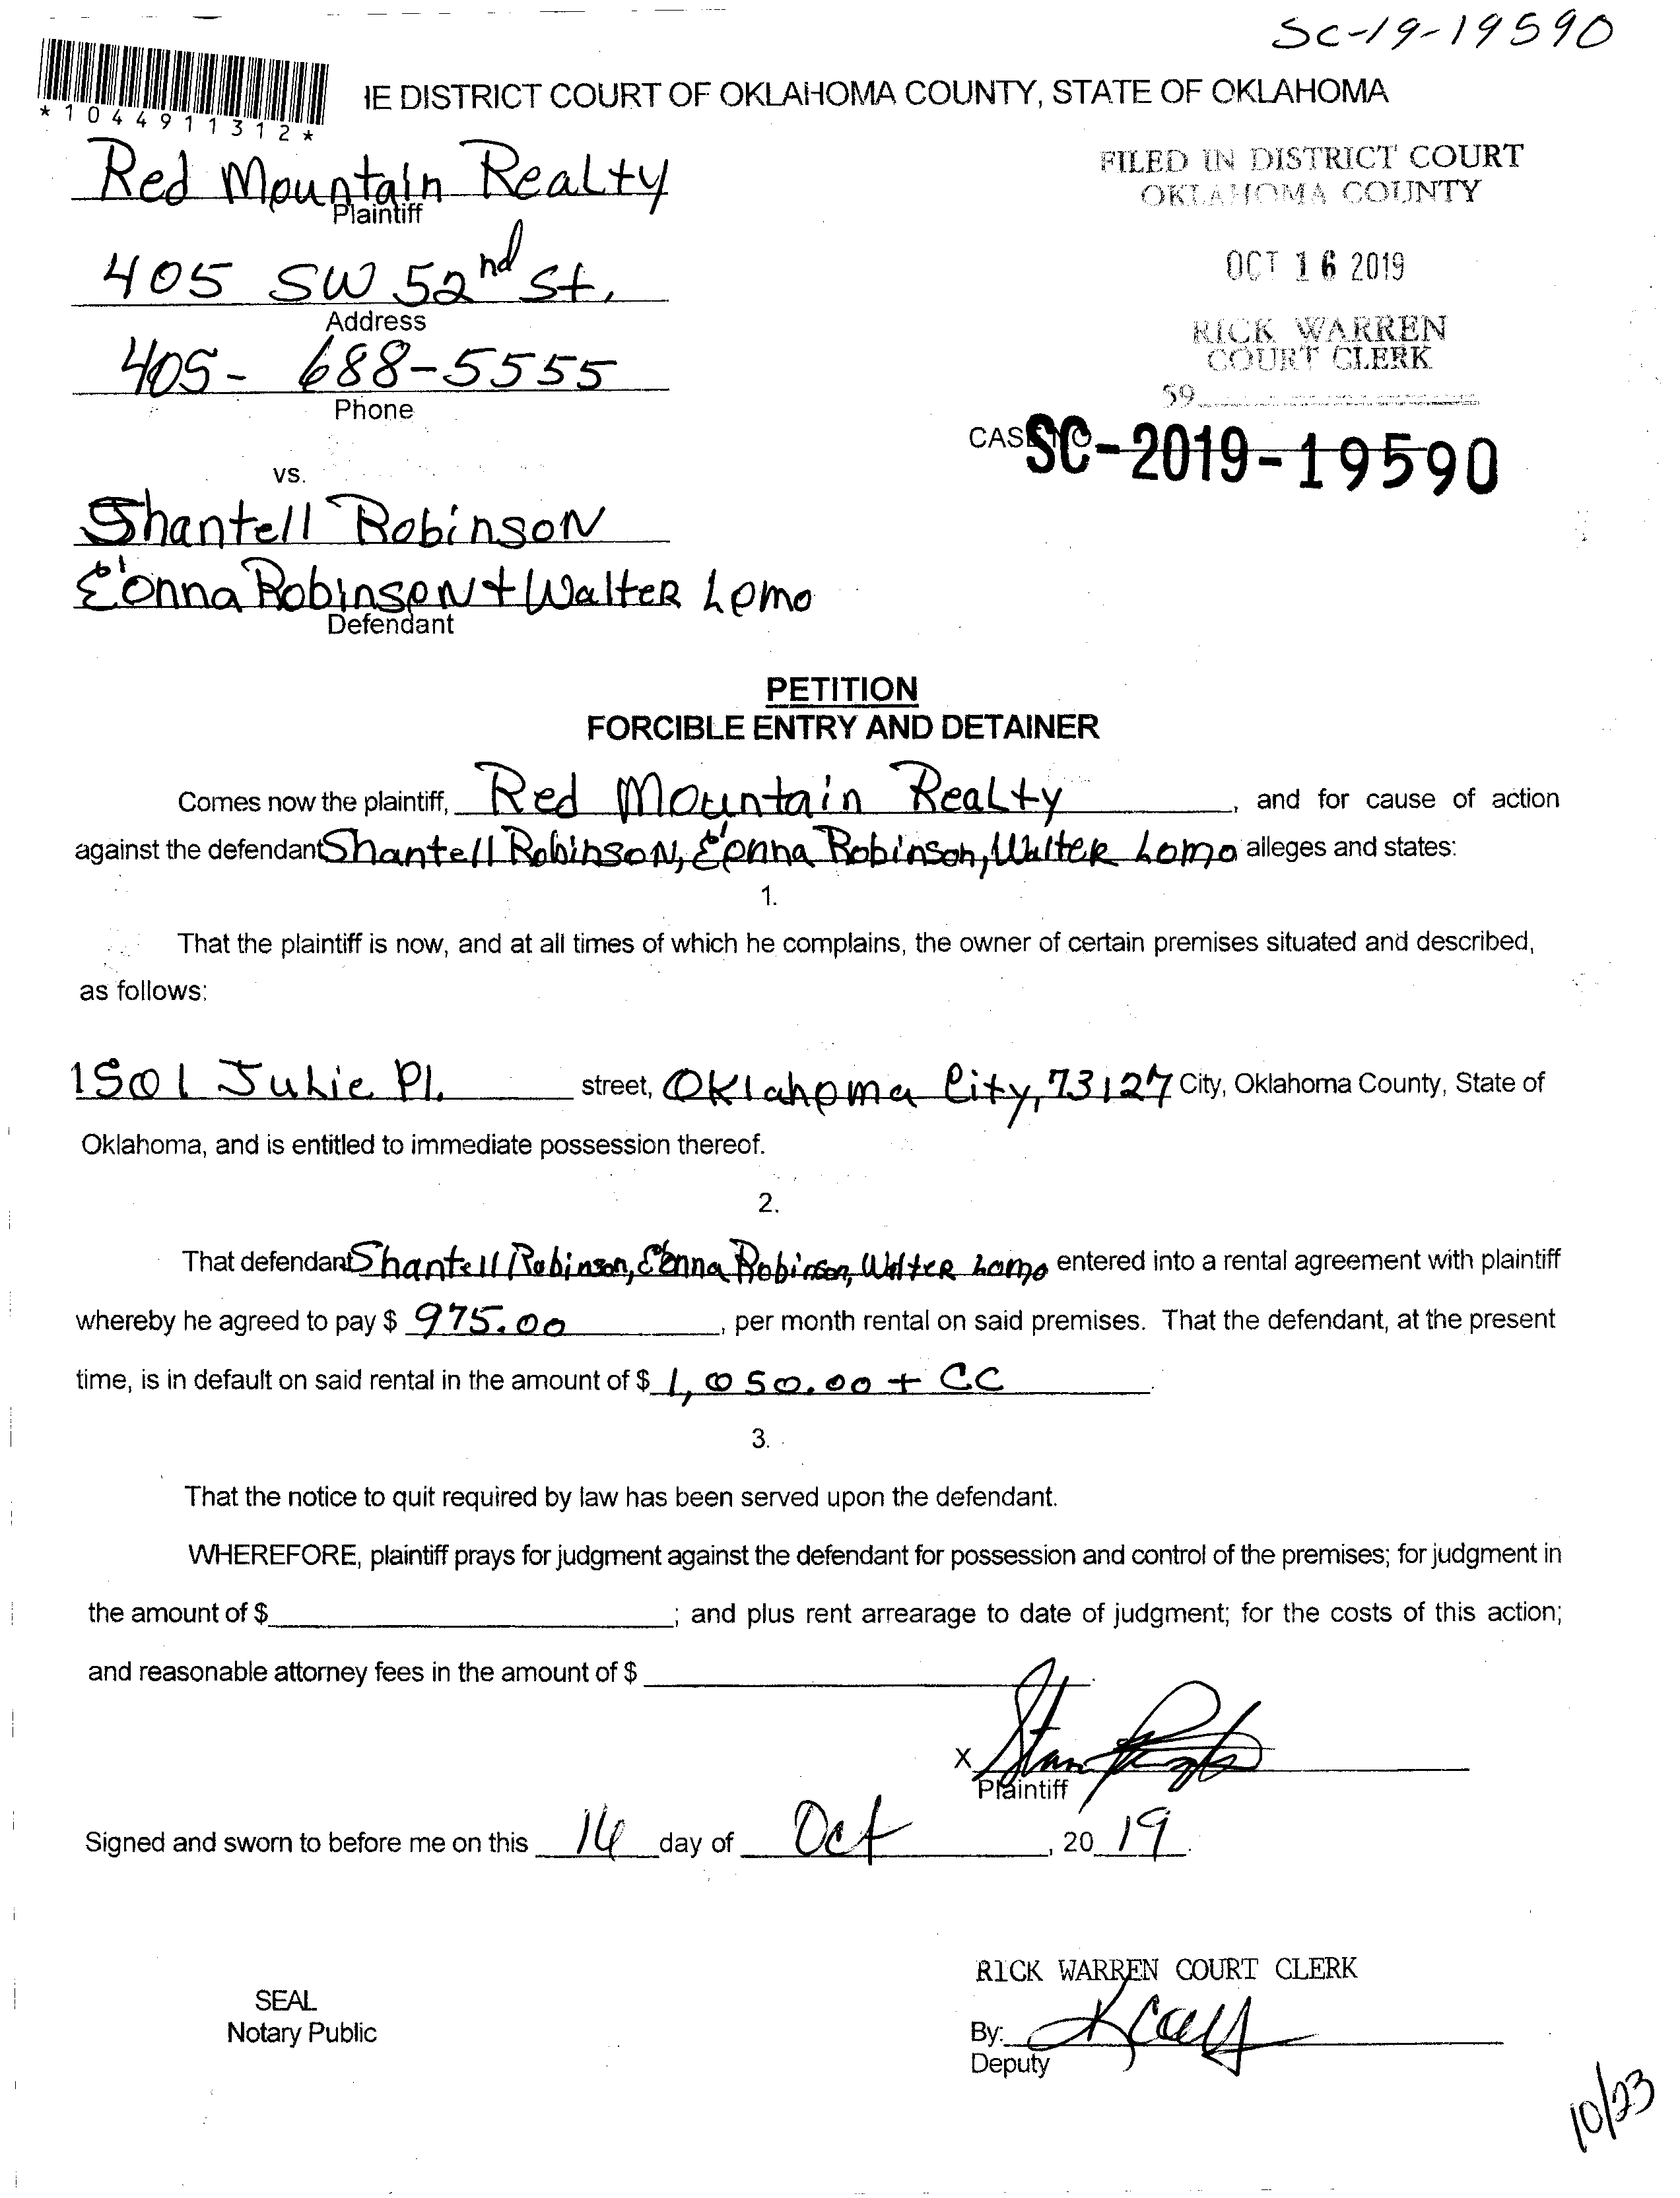 SC-19-19590
*1044911312*
IE DISTRICT COURT OF OKLAHOMA COUNTY, STATE OF OKLAHOMA
Red Mountain Realty
Plaintiff
FILED IN DISTRICT COURT
OKLAHOMA COUNTY
405 SW 52nd St,
Address
OCT 16 2019
405- 688-5555
Phone
RICK WARREN
COURT CLERK
59
CASE NO SC-2019-19590
vs.
Shantell Robinson
E'onna Robinson + Walter Lomo
Defendant
PETITION
FORCIBLE ENTRY AND DETAINER
Comes now the plaintiff, Red Mountain Realty, and for cause of action
against the defendant Shantell Robinson, E'onna Robinson, Walter Lomo alleges and states:
1.
That the plaintiff is now, and at all times of which he complains, the owner of certain premises situated and described,
as follows:
1501 Julie Pl. street, Oklahoma City, 73127 City, Oklahoma County, State of
Oklahoma, and is entitled to immediate possession thereof.
2.
That defendant Shantell Robinson, E'onna Robinson, Walter Lomo entered into a rental agreement with plaintiff
whereby he agreed to pay $ 975.00, per month rental on said premises. That the defendant, at the present
time, is in default on said rental in the amount of $ 1,050.00 + CC.
3.
That the notice to quit required by law has been served upon the defendant.
WHEREFORE, plaintiff prays for judgment against the defendant for possession and control of the premises; for judgment in
the amount of $ ; and plus rent arrearage to date of judgment; for the costs of this action;
and reasonable attorney fees in the amount of $ .
X
Plaintiff
Signed and sworn to before me on this 16 day of Oct, 20 19.
RICK WARREN COURT CLERK
SEAL
Notary Public
By:
Deputy
10/23